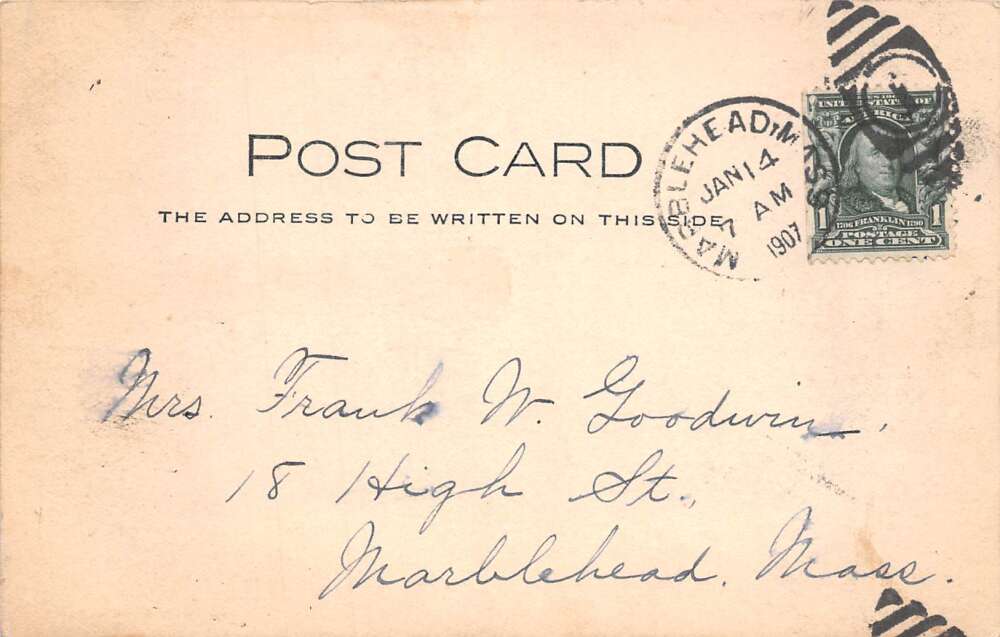 POST CARD
THE ADDRESS TO BE WRITTEN ON THIS SIDE
MARBLEHEAD, MASS
JAN 14
7 AM
1907
UNITED STATES OF
AMERICA
1706 FRANKLIN 1790
1 POSTAGE 1
ONE CENT
Mrs. Frank W. Goodwin,
18 High St.,
Marblehead, Mass.